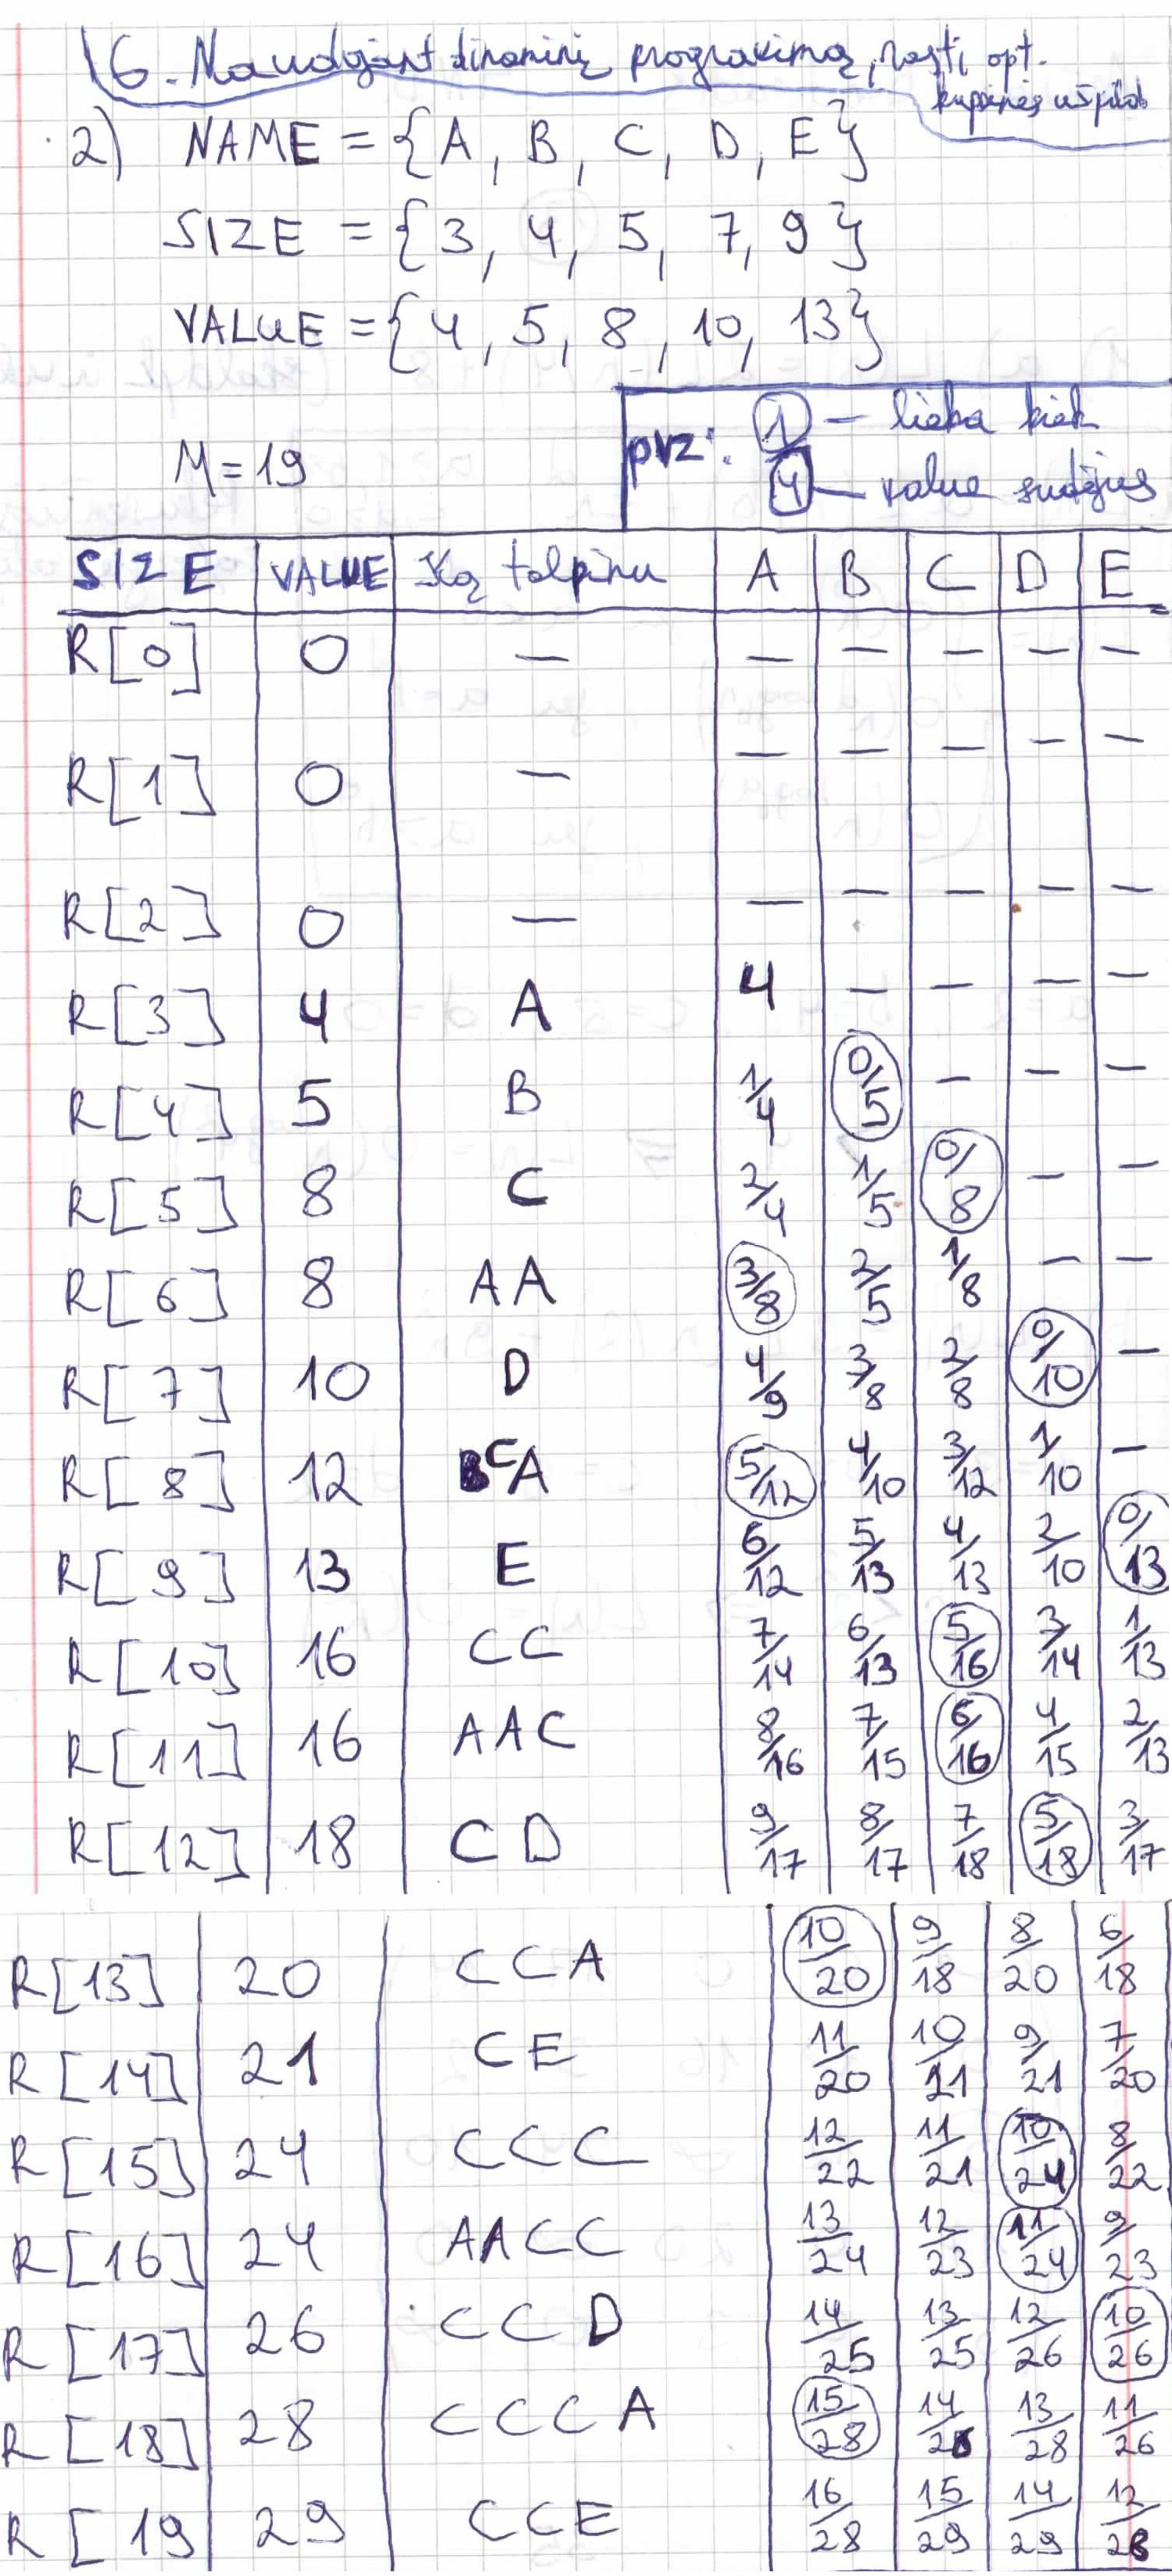 16. Naudojant dinaminį programimą, rasti opt.
kuprinės užpild
2) NAME = {A, B, C, D, E}
SIZE = {3, 4, 5, 7, 9}
VALUE = {4, 5, 8, 10, 13}
M = 19
pvz: 1 — lieka kiek
4 — value sudėjus
SIZE VALUE Ką talpinu A B C D E
R[0] 0 — — — — — —
R[1] 0 — — — — — —
R[2] 0 — — — — — —
R[3] 4 A 4 — — — —
R[4] 5 B 1/4 0/5 — — —
R[5] 8 C 2/4 1/5 0/8 — —
R[6] 8 AA 3/8 2/5 1/8 — —
R[7] 10 D 4/9 3/8 2/8 0/10 —
R[8] 12 CA 5/12 4/10 3/12 1/10 —
R[9] 13 E 6/12 5/13 4/13 2/10 0/13
R[10] 16 CC 7/14 6/13 5/16 3/14 1/13
R[11] 16 AAC 8/16 7/15 6/16 4/15 2/13
R[12] 18 CD 9/17 8/17 7/18 5/18 3/17
R[13] 20 CCA 10/20 9/18 8/20 6/18
R[14] 21 CE 11/20 10/21 9/21 7/20
R[15] 24 CCC 12/22 11/21 10/24 8/22
R[16] 24 AACC 13/24 12/23 11/24 9/23
R[17] 26 CCD 14/25 13/25 12/26 10/26
R[18] 28 CCCA 15/28 14/26 13/28 11/26
R[19 29 CCE 16/28 15/29 14/29 12/28